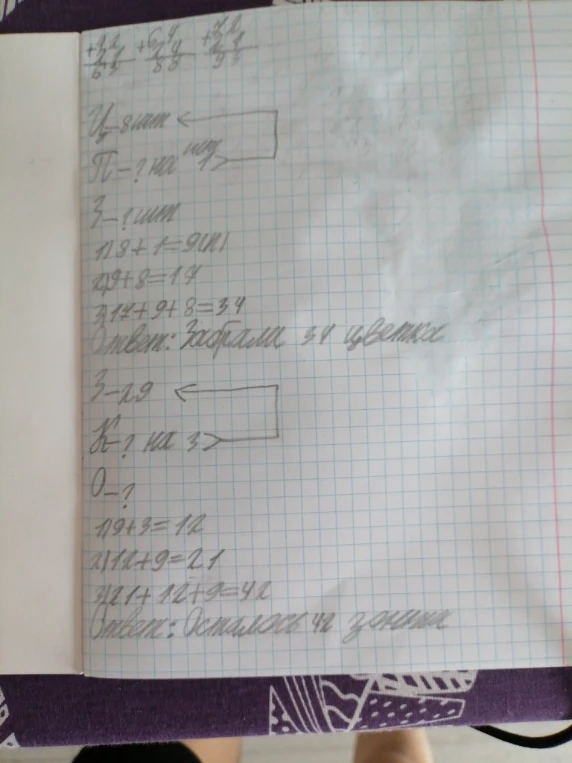 +32 +64 +72
21 24 21
63 88 93
Ц-8шт
П-? на 1>
З-?шт
1)8+1=9(п)
2)9+8=17
3)17+9+8=34
Ответ: Забрали 34 цветка
З-29
К-? на 3>
О-?
1)9+3=12
2)12+9=21
3)21+12+9=42
Ответ: Осталось 42 зонта